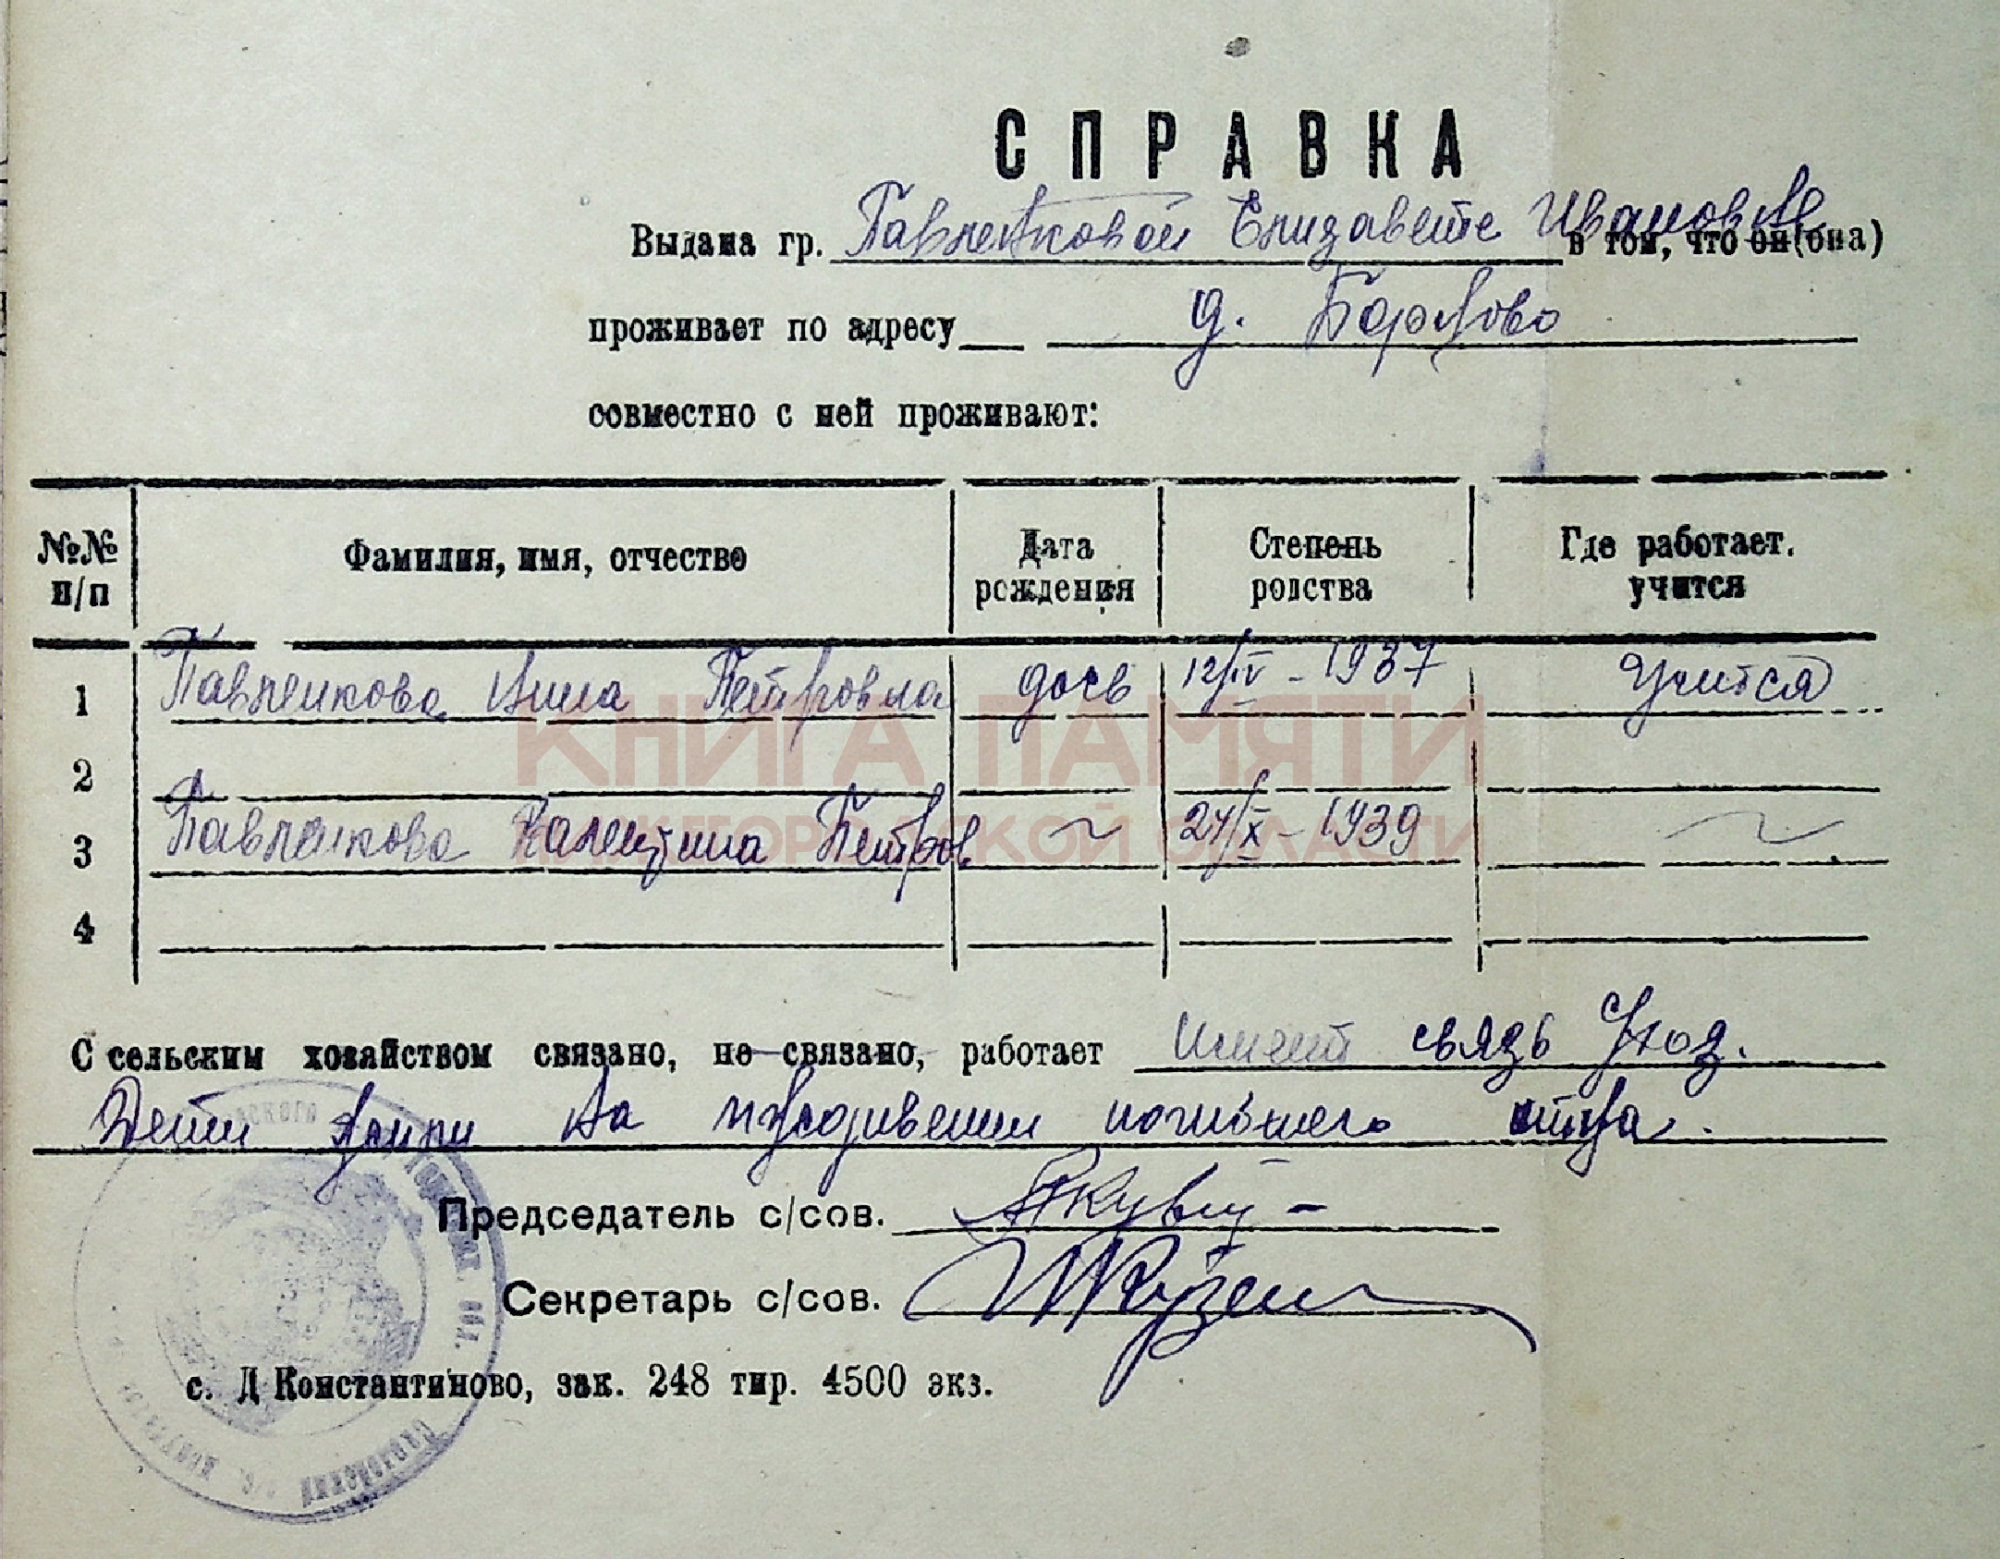 СПРАВКА
Выдана гр. Павленковой Елизавете Ивановне в том, что он(она)
проживает по адресу д. Борятово
совместно с ней проживают:
№№ п/п Фамилия, имя, отчество Дата рождения Степень родства Где работает. учится
1 Павленкова Анна Петровна дочь 12/IV - 1937 Учится
2
3 Павленкова Валентина Петров ~ 24/X - 1939 ~
4
КНИГА ПАМЯТИ
НИЖЕГОРОДСКОЙ ОБЛАСТИ
С сельским хозяйством связано, не связано, работает имеет связь
Дети были на иждивении погибшего отца.
Председатель с/сов.
Секретарь с/сов.
с. Д Константиново, зак. 248 тир. 4500 экз.